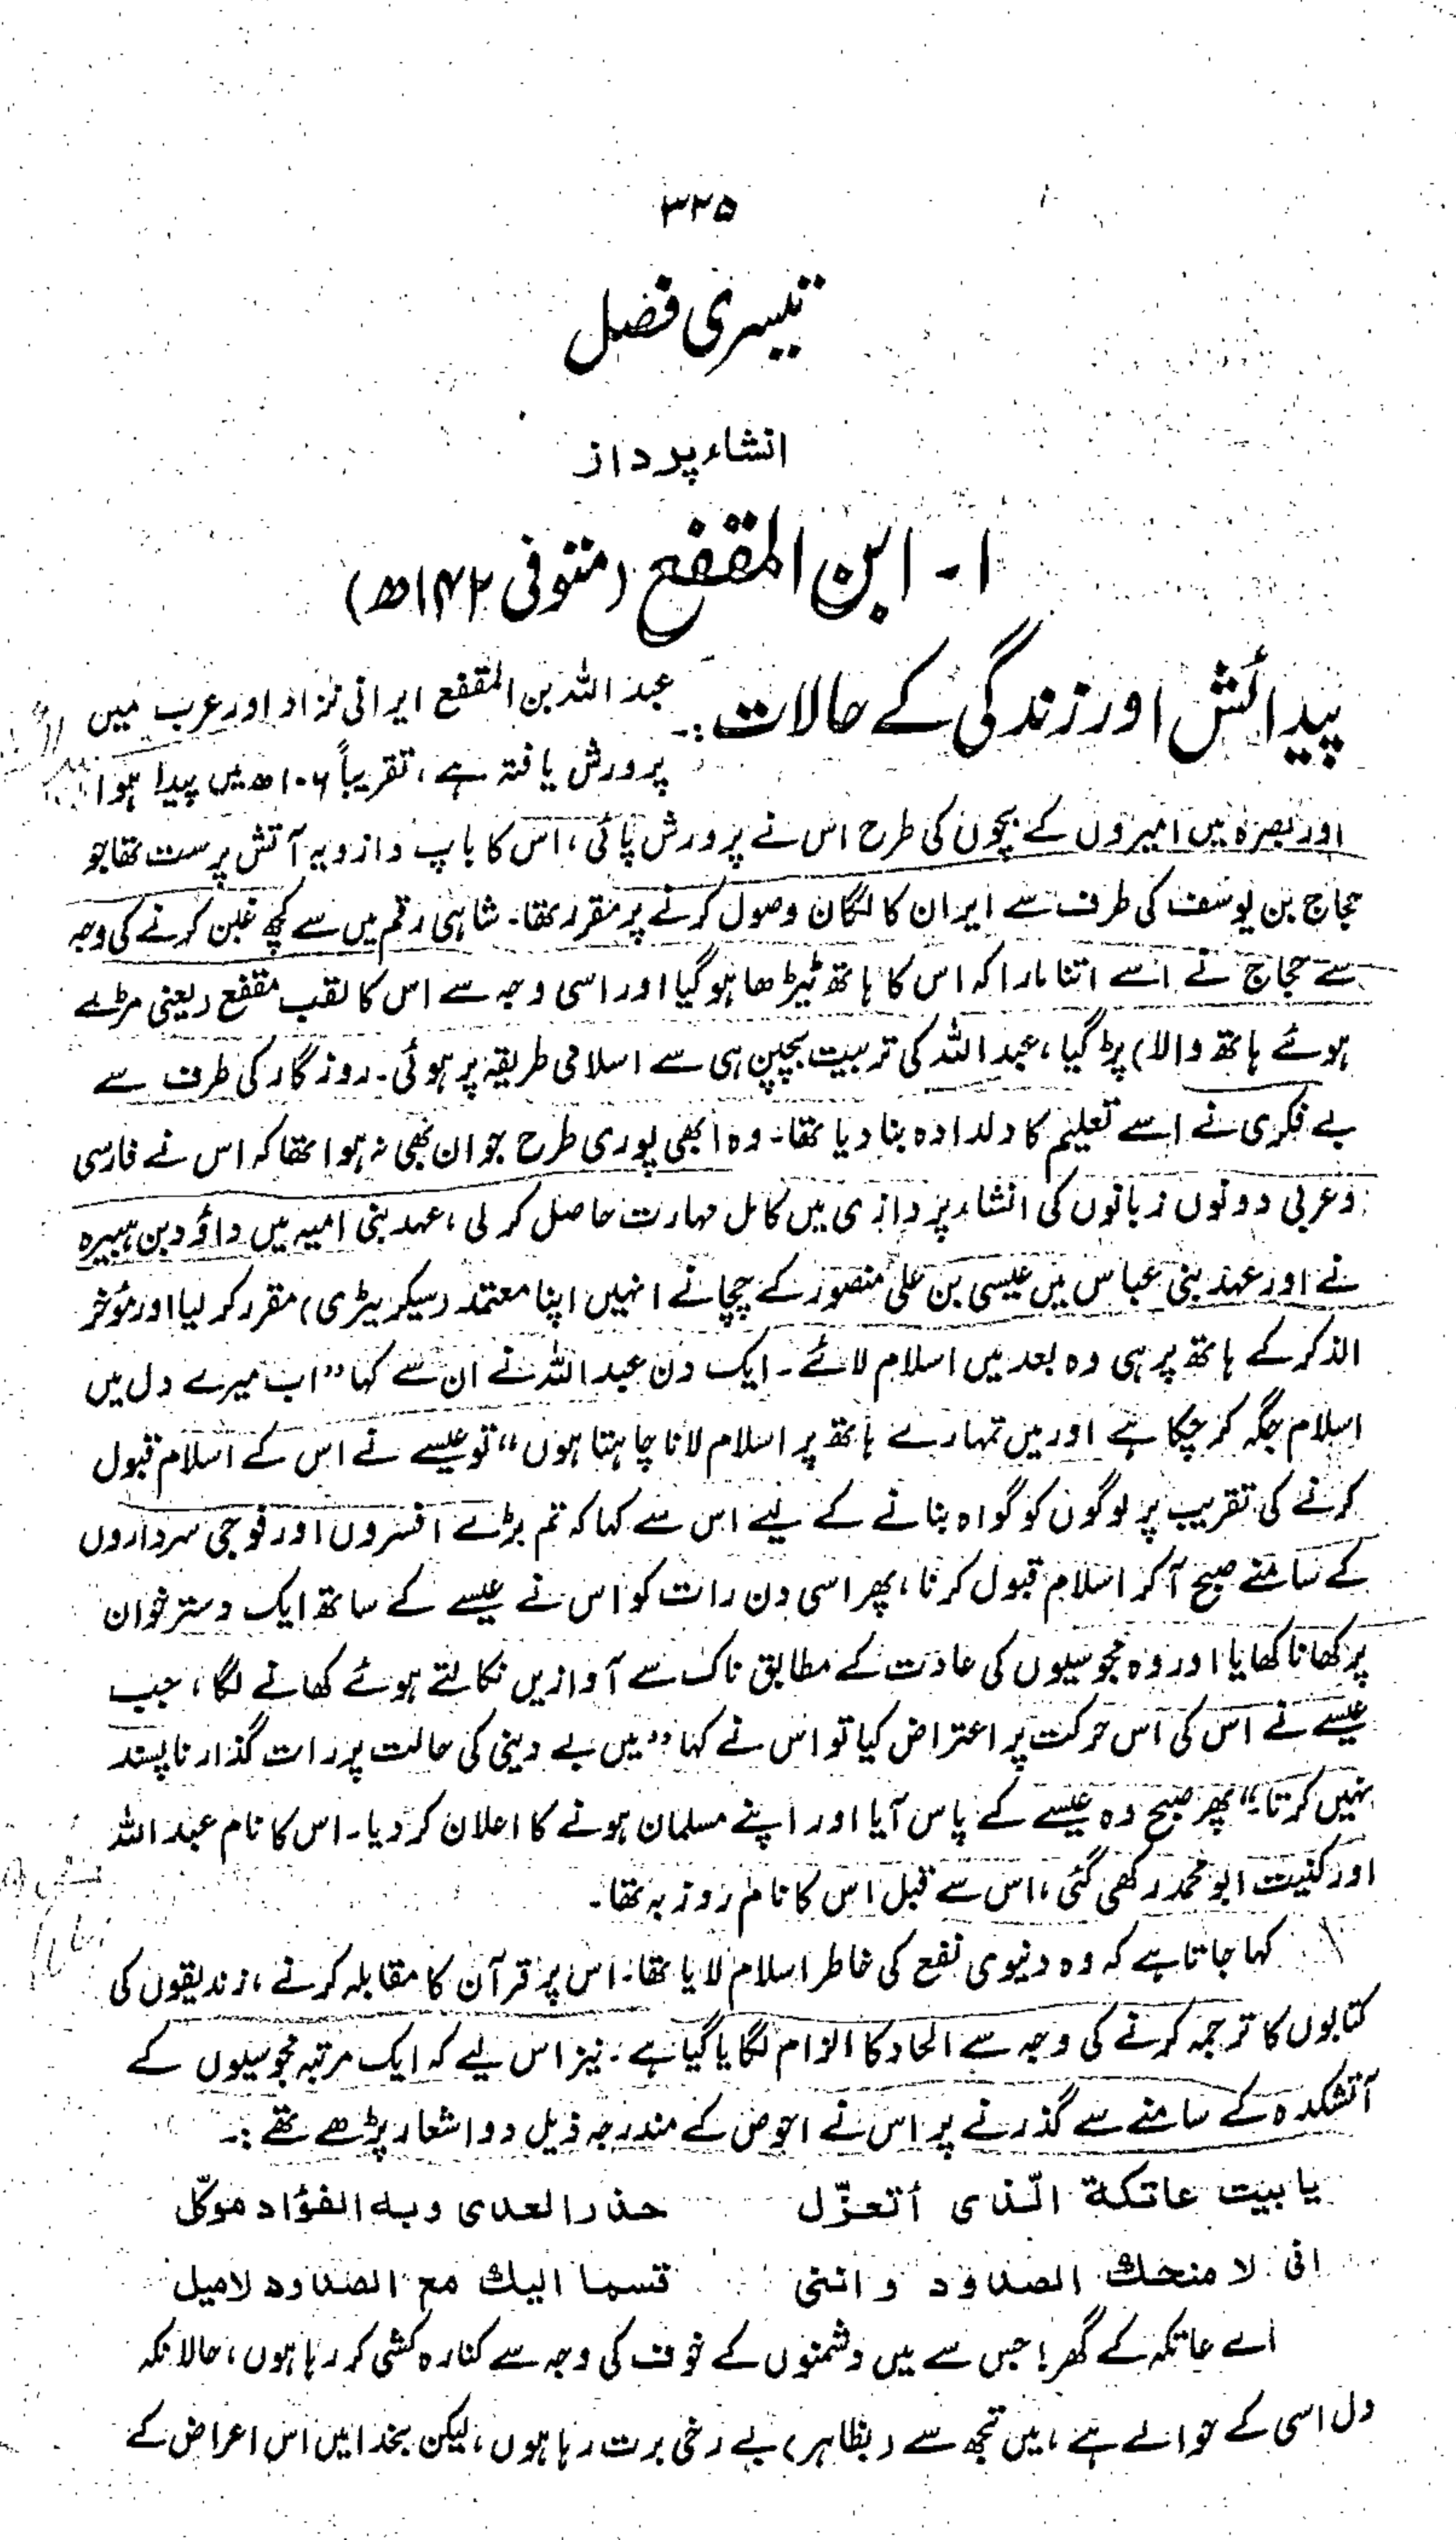 ۳۲۵
تیسری فصل
انشاء پرداز
۱۔ ابن المقفع (متوفی ۱۴۲ھ)
پیدائش اور زندگی کے حالات :۔ عبد اللہ بن المقفع ایرانی نژاد اور عرب میں
پرورش یافتہ ہے، تقریباً ۱۰۶ھ میں پیدا ہوا
اور بصرہ میں امیروں کے بچوں کی طرح اس نے پرورش پائی، اس کا باپ داذویہ آتش پرست تھا جو
حجاج بن یوسف کی طرف سے ایران کا لگان وصول کرنے پر مقرر تھا۔ شاہی رقم میں سے کچھ غبن کرنے کی وجہ
سے حجاج نے اسے اتنا مارا کہ اس کا ہاتھ ٹیڑھا ہو گیا اور اسی وجہ سے اس کا لقب مقفع (یعنی مڑے
ہوئے ہاتھ والا) پڑ گیا، عبد اللہ کی تربیت بچپن ہی سے اسلامی طریقہ پر ہوئی۔ روزگار کی طرف سے
بے فکری نے اسے تعلیم کا دلدادہ بنا دیا تھا۔ وہ ابھی پوری طرح جوان بھی نہ ہوا تھا کہ اس نے فارسی
و عربی دونوں زبانوں کی انشاء پردازی میں کامل مہارت حاصل کر لی، عہد بنی امیہ میں داؤد بن ہبیرہ
نے اور عہد بنی عباس میں عیسی بن علی منصور کے چچا نے انہیں اپنا معتمد (سیکریٹری) مقرر کر لیا اور مؤخر
الذکر کے ہاتھ پر ہی وہ بعد میں اسلام لائے۔ ایک دن عبد اللہ نے ان سے کہا ”اب میرے دل میں
اسلام جگہ کر چکا ہے اور میں تمہارے ہاتھ پر اسلام لانا چاہتا ہوں“ تو عیسے نے اس کے اسلام قبول
کرنے کی تقریب پر لوگوں کو گواہ بنانے کے لیے اس سے کہا کہ تم بڑے افسروں اور فوجی سرداروں
کے سامنے صبح آ کر اسلام قبول کرنا، پھر اسی دن رات کو اس نے عیسے کے ساتھ ایک دسترخوان
پر کھانا کھایا اور وہ مجوسیوں کی عادت کے مطابق ناک سے آوازیں نکالتے ہوئے کھانے لگا، جب
عیسے نے اس کی اس حرکت پر اعتراض کیا تو اس نے کہا ”میں بے دینی کی حالت پر رات گذارنا پسند
نہیں کرتا۔“ پھر صبح وہ عیسے کے پاس آیا اور اپنے مسلمان ہونے کا اعلان کر دیا۔ اس کا نام عبد اللہ
اور کنیت ابو محمد رکھی گئی، اس سے قبل اس کا نام روزبہ تھا۔
کہا جاتا ہے کہ وہ دنیوی نفع کی خاطر اسلام لایا تھا۔ اس پر قرآن کا مقابلہ کرنے، زندیقوں کی
کتابوں کا ترجمہ کرنے کی وجہ سے الحاد کا الزام لگایا گیا ہے۔ نیز اس لیے کہ ایک مرتبہ مجوسیوں کے
آتشکدہ کے سامنے سے گذرنے پر اس نے احوص کے مندرجہ ذیل دو اشعار پڑھے تھے :۔
یا بیت عاتکة الّذی أتعزّل حذر العدی وبه الفؤاد موکّل
انی لا منحك الصدود و اننی قسما الیك مع الصدود لامیل
اے عاتکہ کے گھر! جس سے میں دشمنوں کے خوف کی وجہ سے کنارہ کشی کر رہا ہوں، حالانکہ
دل اسی کے حوالے ہے، میں تجھ سے (بظاہر) بے رخی برت رہا ہوں، لیکن بخدا میں اس اعراض کے